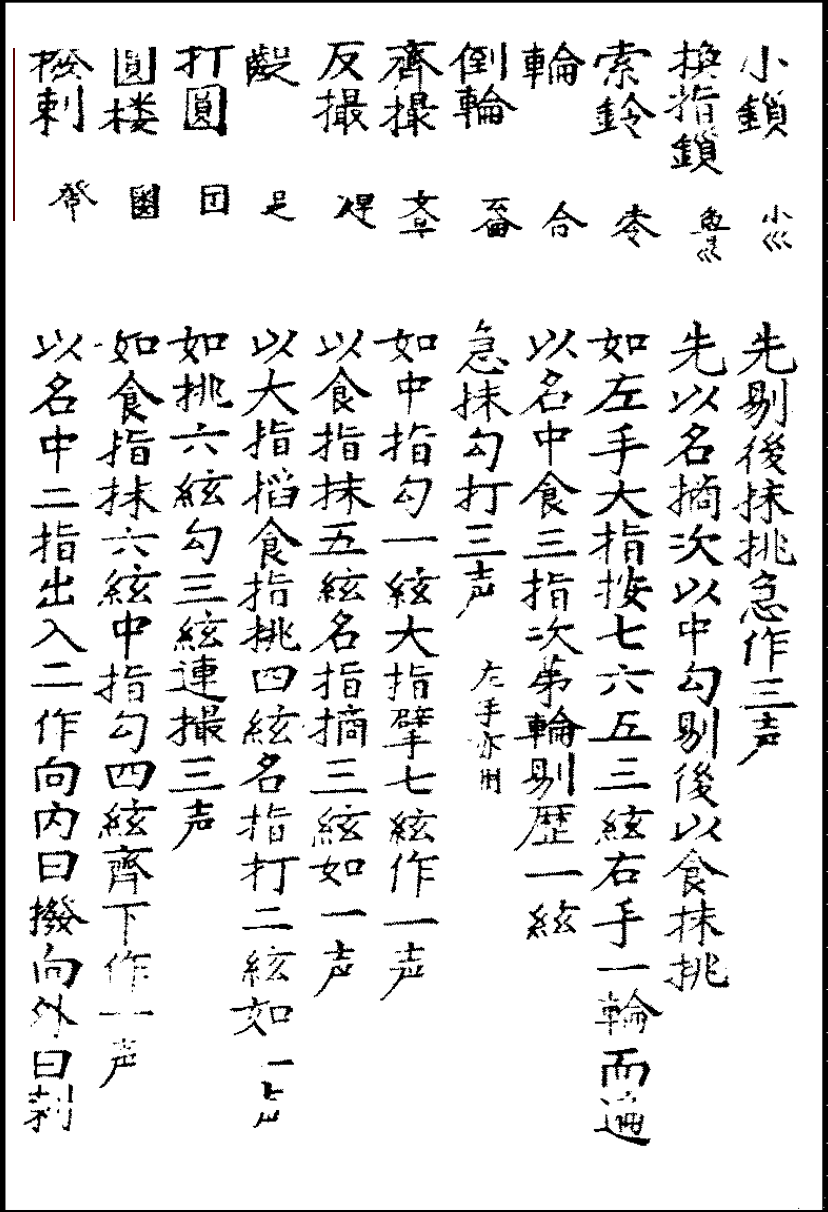 小鎖 小巛 先剔後抹挑急作三声
換指鎖 先以名摘次以中勾剔後以食抹挑
索鈴 如左手大指按七六五三絃右手一輪而過
輪 合 以名中食三指次第輪剔歴一絃
倒輪 急抹勾打三声 左手亦用
齊撮 如中指勾一絃大指擘七絃作一声
反撮 以食指抹五絃名指摘三絃如一声
以大指搯食指挑四絃名指打二絃如一声
打圓 如挑六絃勾三絃連撮三声
圓楼 如食指抹六絃中指勾四絃齊下作一声
撥剌 以名中二指出入二作向内曰撥向外曰剌